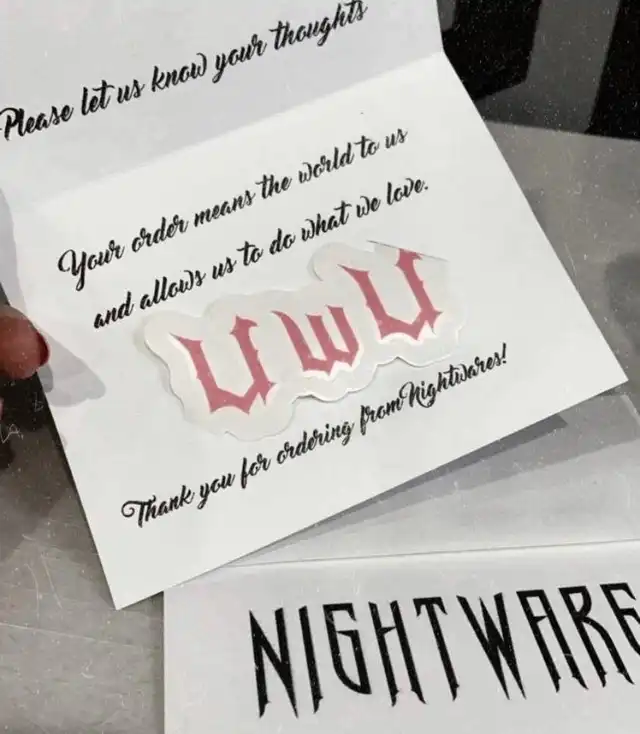 Please let us know your thoughts
Your order means the world to us
and allows us to do what we love.
UwU
Thank you for ordering from Nightwares!
NIGHTWARE